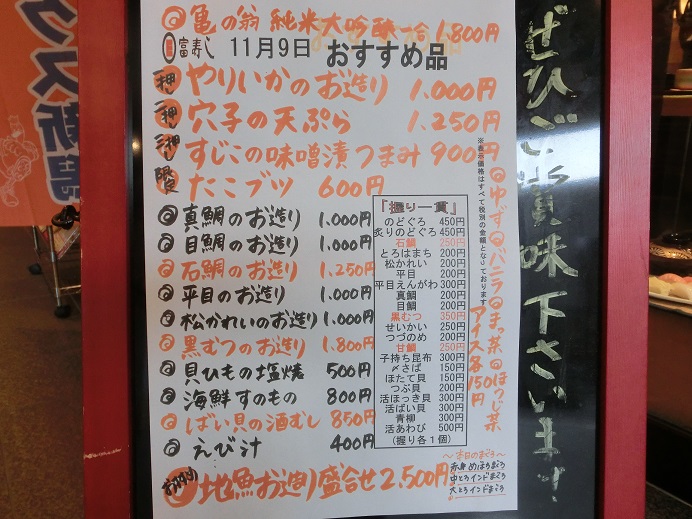 ◎亀の翁 純米大吟醸一合 1,800円
富寿し 11月9日 おすすめ品
やりいかのお造り 1,000円
穴子の天ぷら 1,250円
すじこの味噌漬つまみ 900円
たこブツ 600円
◎真鯛のお造り 1,000円
◎目鯛のお造り 1,000円
◎石鯛のお造り 1,250円
◎平目のお造り 1,000円
◎松かれいのお造り 1,000円
◎黒むつのお造り 1,800円
◎貝ひもの塩焼 500円
◎海鮮すのもの 800円
◎ばい貝の酒むし 850円
◎えび汁 400円
地魚お造り盛合せ 2,500円
『握り一貫』
のどぐろ 450円
炙りのどぐろ 450円
石鯛 250円
とろはまち 200円
松かれい 200円
平目 200円
平目えんがわ 300円
真鯛 200円
目鯛 200円
黒むつ 350円
せいかい 250円
つづのめ 200円
甘鯛 250円
子持ち昆布 300円
〆さば 150円
ほたて貝 150円
つぶ貝 200円
活ほっき貝 300円
活ばい貝 300円
青柳 300円
活あわび 500円
(握り各1個)
※表示価格はすべて税別の金額となっております
◎ゆず◎バニラ◎まっ茶◎ほうじ茶
アイス各150円
～本日のまぐろ～
赤身 めばちまぐろ
中とろ インドまぐろ
大とろ インドまぐろ
ぜひご賞味下さいませ
クス新潟